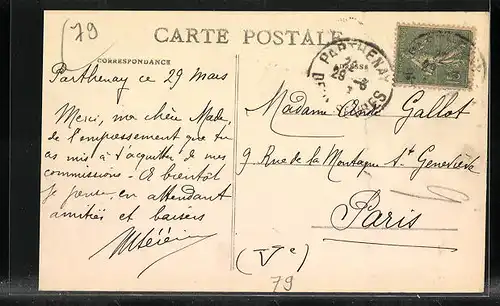 79
CARTE POSTALE
CORRESPONDANCE
ADRESSE
PARTHENAY
Parthenay ce 29 Mars
Merci, ma chère Made,
de l'empressement que tu
as mis à t'acquitter de mes
commissions - A bientôt
je pense, en attendant
amitiés et baisers
Madame Gallot
9 Rue de la Montagne Ste Geneviève
Paris
(Ve)
79